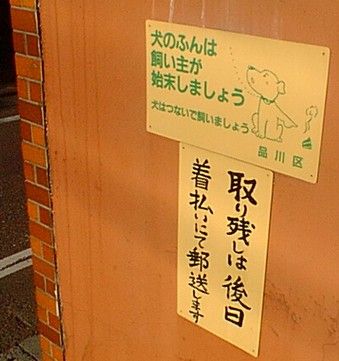 犬のふんは
飼い主が
始末しましょう
犬はつないで飼いましょう
品川区
取り残しは後日
着払いにて郵送します